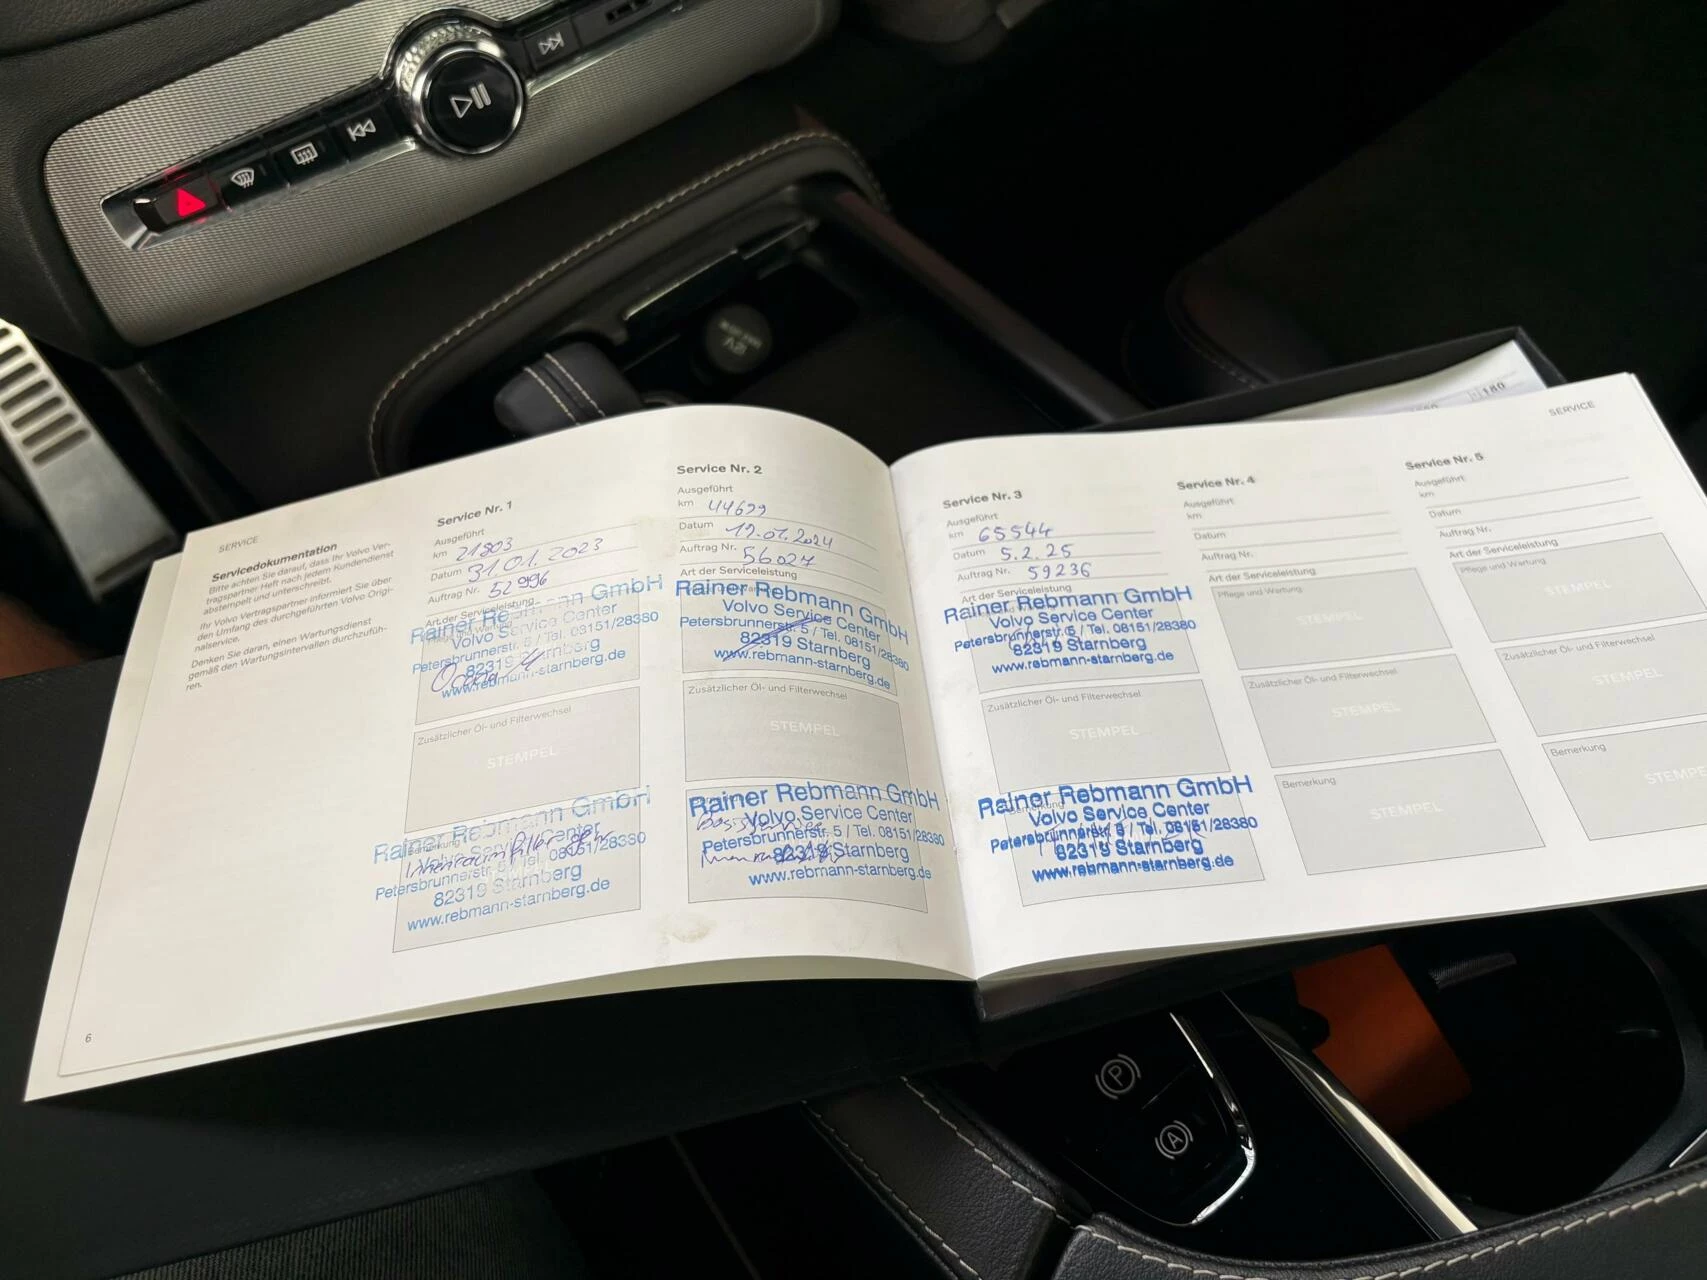 SERVICE
Servicedokumentation
Bitte achten Sie darauf, dass Ihr Volvo Ver-
tragspartner Heft nach jedem Kundendienst
abstempelt und unterschreibt.
Ihr Volvo Vertragspartner informiert Sie über
den Umfang des durchgeführten Volvo Origi-
nalservice.
Denken Sie daran, einen Wartungsdienst
gemäß den Wartungsintervallen durchzufüh-
ren.
6
Service Nr. 1
Ausgeführt
km 21803
Datum 31.01.2023
Auftrag Nr. 52996
Art der Serviceleistung
Rainer Rebmann GmbH
Volvo Service Center
Petersbrunnerstr. 5 / Tel. 08151/28380
82319 Starnberg
www.rebmann-starnberg.de
Zusätzlicher Öl- und Filterwechsel
STEMPEL
Rainer Rebmann GmbH
Bemerkung
Volvo Service Center
Innenraumfilter
Petersbrunnerstr. 5 / Tel. 08151/28380
82319 Starnberg
www.rebmann-starnberg.de
Service Nr. 2
Ausgeführt
km 44699
Datum 19.01.2024
Auftrag Nr. 56027
Art der Serviceleistung
Rainer Rebmann GmbH
Volvo Service Center
Petersbrunnerstr. 5 / Tel. 08151/28380
82319 Starnberg
www.rebmann-starnberg.de
Zusätzlicher Öl- und Filterwechsel
STEMPEL
Rainer Rebmann GmbH
Volvo Service Center
Petersbrunnerstr. 5 / Tel. 08151/28380
82319 Starnberg
www.rebmann-starnberg.de
SERVICE
Service Nr. 3
Ausgeführt
km 65544
Datum 5.2.25
Auftrag Nr. 59236
Art der Serviceleistung
Rainer Rebmann GmbH
Volvo Service Center
Petersbrunnerstr. 5 / Tel. 08151/28380
82319 Starnberg
www.rebmann-starnberg.de
Zusätzlicher Öl- und Filterwechsel
STEMPEL
Rainer Rebmann GmbH
Bemerkung
Volvo Service Center
Petersbrunnerstr. 5 / Tel. 08151/28380
82319 Starnberg
www.rebmann-starnberg.de
Service Nr. 4
Ausgeführt
km
Datum
Auftrag Nr.
Art der Serviceleistung
Pflege und Wartung
STEMPEL
Zusätzlicher Öl- und Filterwechsel
STEMPEL
Bemerkung
STEMPEL
Service Nr. 5
Ausgeführt
km
Datum
Auftrag Nr.
Art der Serviceleistung
Pflege und Wartung
STEMPEL
Zusätzlicher Öl- und Filterwechsel
STEMPEL
Bemerkung
STEMPE
180
12V
P
A